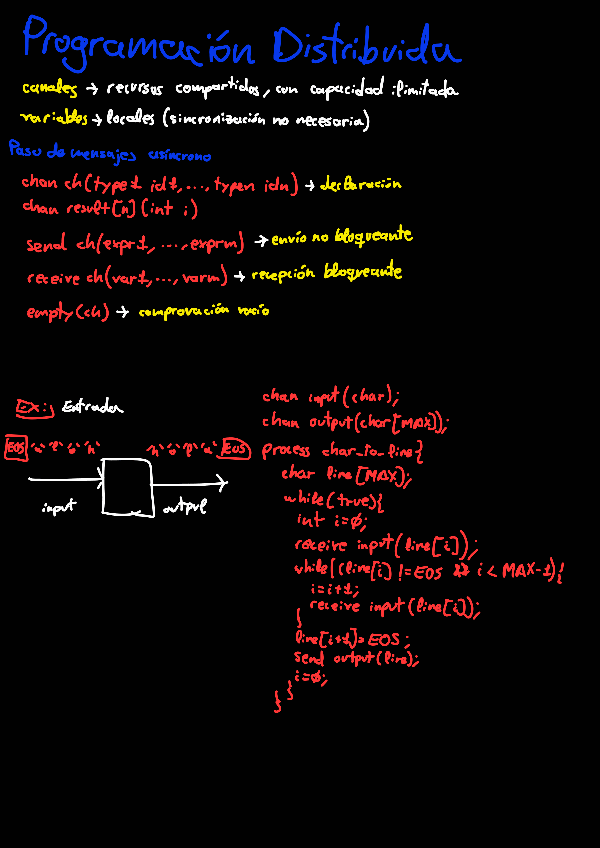 Programación Distribuida
canales → recursos compartidos, con capacidad ilimitada
variables → locales (sincronización no necesaria)
Paso de mensajes asíncrono
chan ch(type1 id1,...,typen idn) → declaración
chan result[n](int i)
send ch(expr1,...,exprn) → envío no bloqueante
receive ch(var1,...,varn) → recepción bloqueante
empty(ch) → comprovación vacío
EX: Entrada
EOS 'a' 'l' 'o' 'h'
'h' 'o' 'l' 'a' EOS
input
output
chan input(char);
chan output(char[MAX]);
process char_to_line{
char line[MAX];
while(true){
int i=0;
receive input(line[i]);
while((line[i] != EOS && i < MAX-1){
i=i+1;
receive input(line[i]);
}
line[i+1]=EOS;
send output(line);
i=0;
}
}